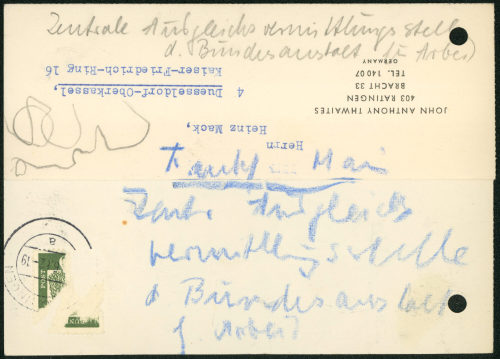 Zentrale Ausgleichsvermittlungsstelle
d. Bundesanstalt für Arbeit
JOHN ANTHONY THWAITES
403 RATINGEN
BRACHT 33
TEL. 14007
GERMANY
Herrn
Heinz Mack,
4 Duesseldorf-Oberkassel,
Kaiser-Friedrich-Ring 16
Frankf Main
Zentr. Ausgleich
vermittlungsstelle
d Bundesanstalt
f Arbeit
POST